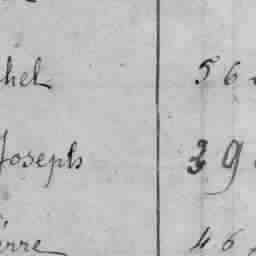 chel 56
Joseph 39
ierre 46